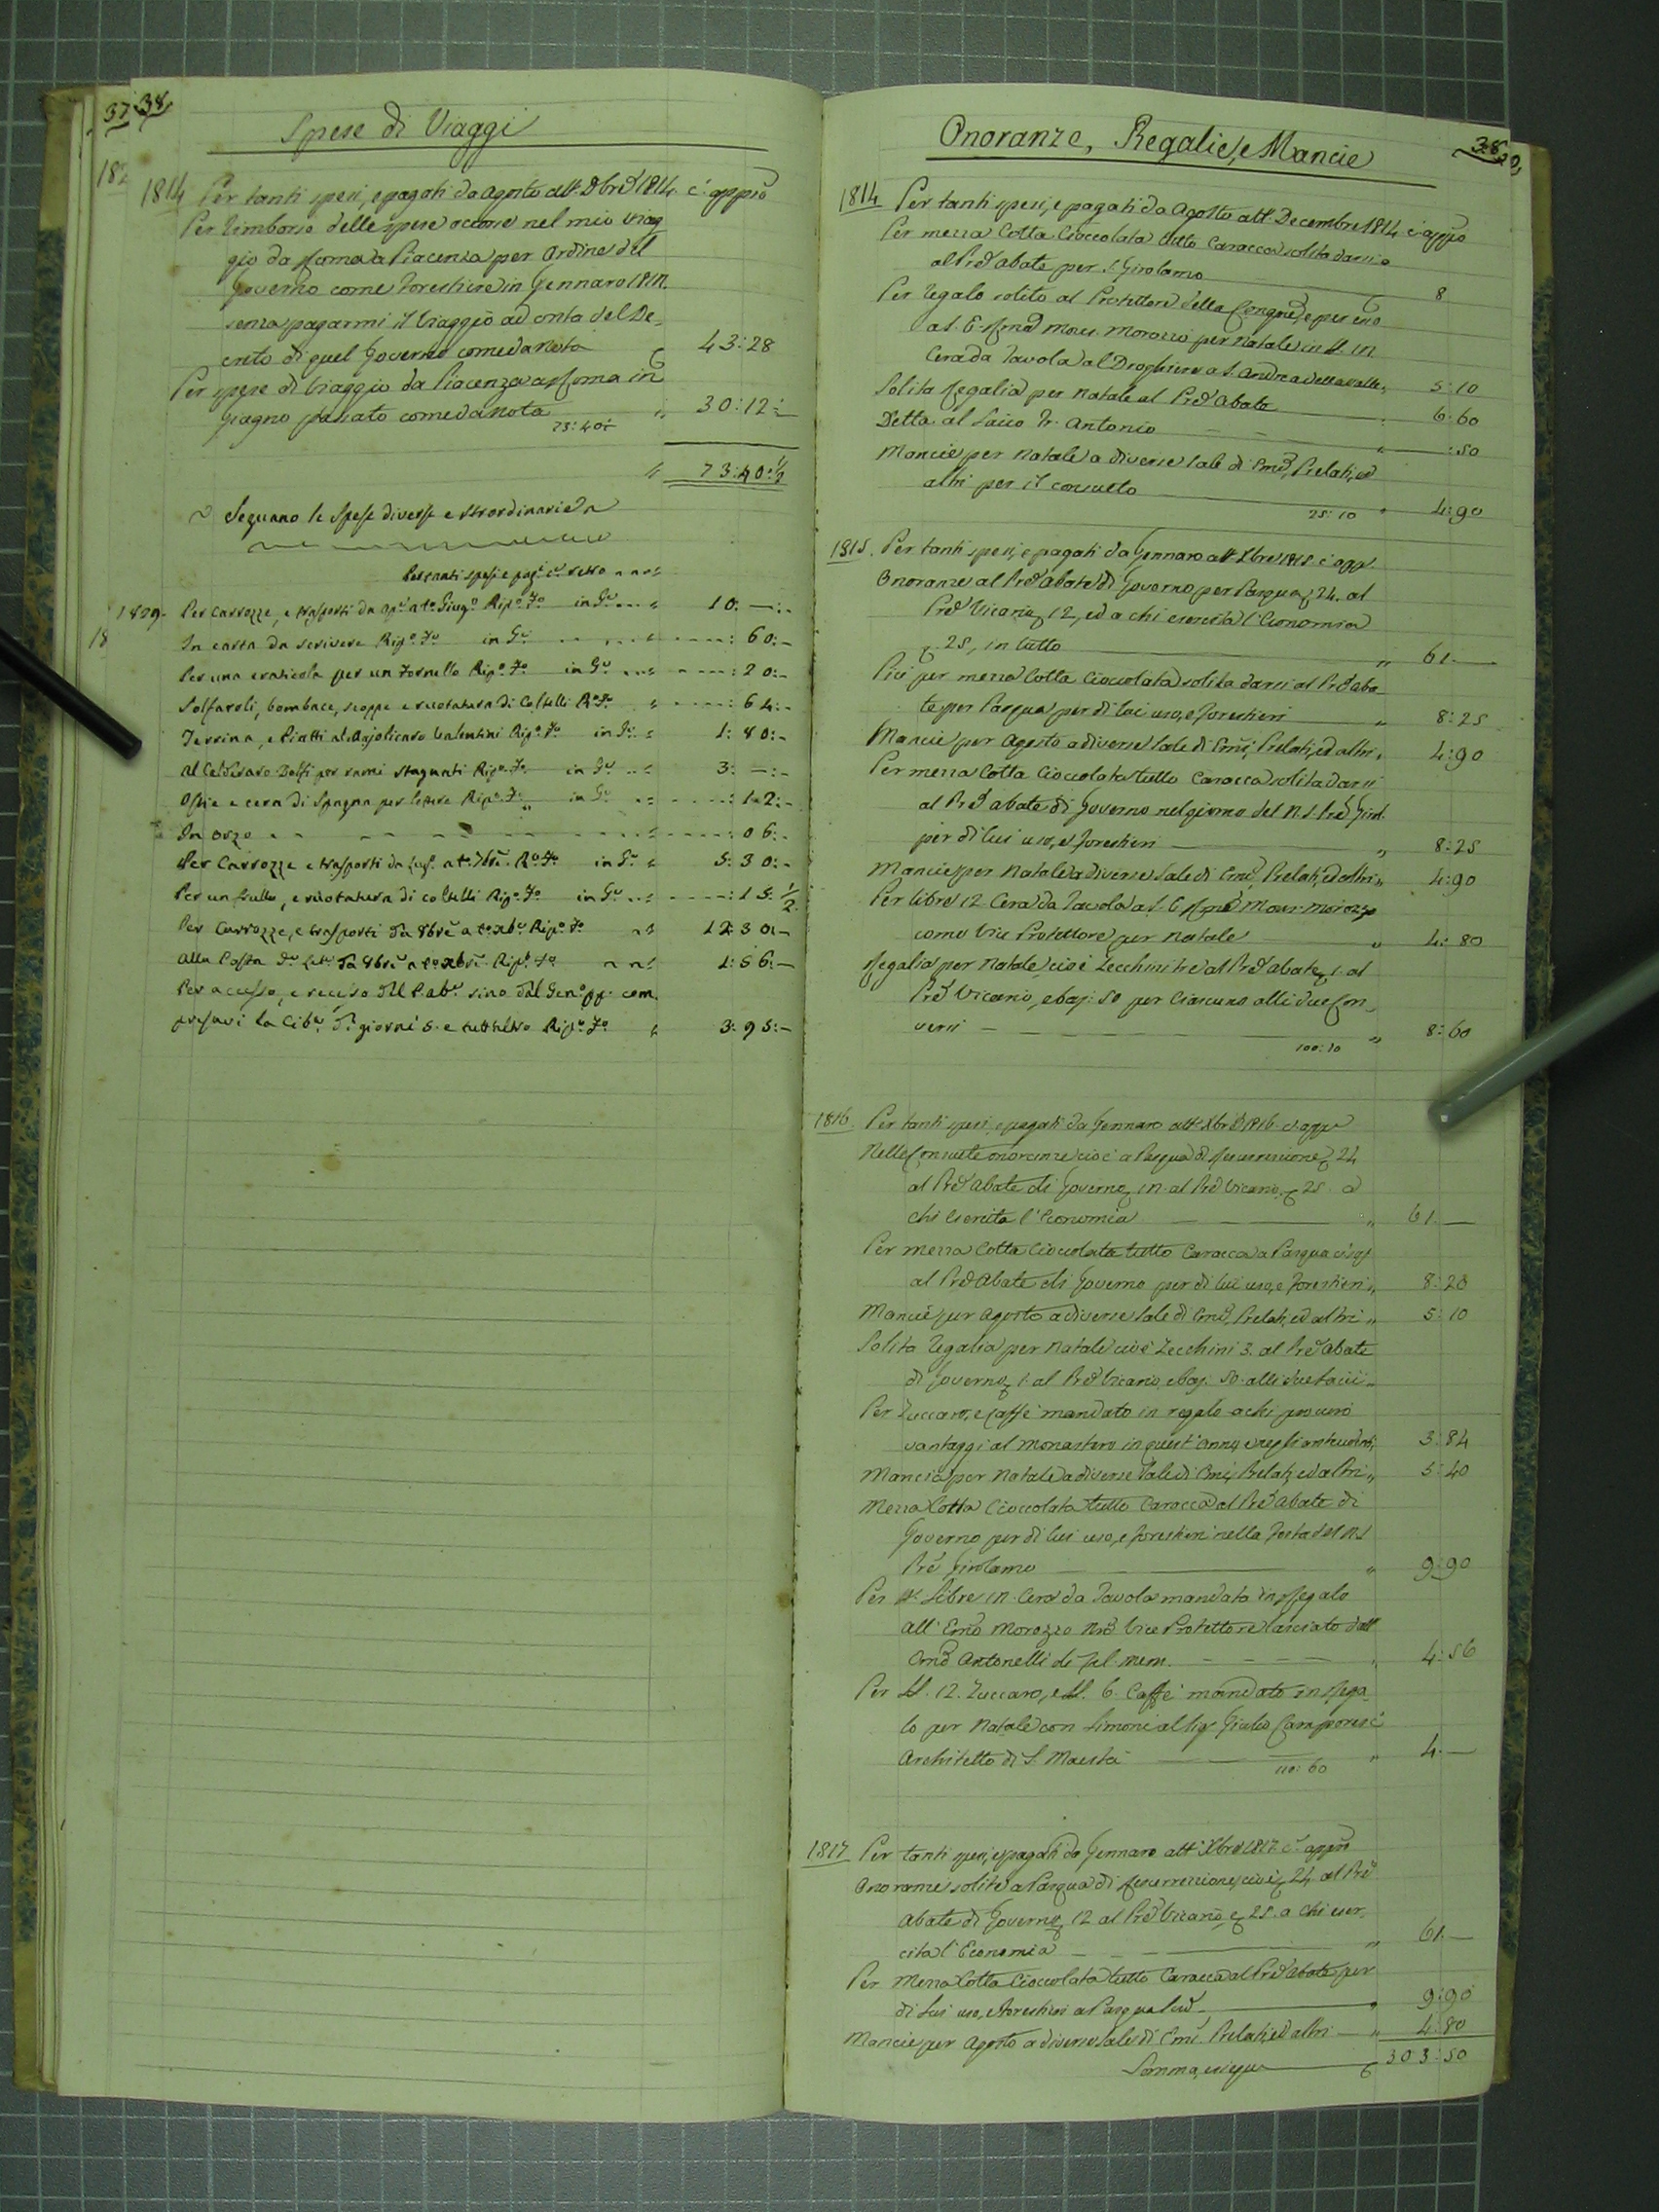 37 38
Spese di Viaggi
1814 Per tanti spesi, e pagati da Agosto all' Xbre 1814. c: appio
Per rimborso delle spese occorse nel mio viag
gio da Roma a Piacenza per ordine del
Governo come Forestiere in Gennaro 1811.
senza pagarmi il Viaggio ad onta del De=
creto di quel Governo come da Nota 43:28
Per spese di Viaggio da Piacenza a Roma in
Giugno passato come da Nota 30:12½
73:40½
73:40:½
Seguano le Spese diverse e strordinarie
Per tanti spesi e pag.
1829. Per Carrozze, e trasporti da Ap. a to. Giug.o Rip.o F.o in G. 10. —:-
18
In carta da scrivere Rip.o F.o in G. 60:-
Per una craticola per un Fornello Rip.o F.o in G. 20:-
Solfaroli, bombace, scoppe e ruotatura di Coltelli R.o F.o 64:-
Terrina, e Piatti al Majolicaro Valentini Rip.o F.o in G. 1:80:-
Al Calderaro Dolfi per rami stagnati Rip.o F.o in G. 3:—:-
Ostie e cera di Spagna per lettere Rip.o F.o in G. 12:-
In Orzo 06:-
Per Carrozze e trasporti da Lug. a to. 7bre. R.o F.o in G. 5:30:-
Per un frullo, e ruotatura di coltelli Rip.o F.o in G. 15:½
Per Carrozze, e trasporti da 8bre a to. Xbre Rip.o F.o 12:30:-
Alla Posta da 8bre a to. Xbre Rip.o F.o 1:56:—
Per accesso, e recesso del P. Ab. sino dal Gen. com
presavi la Cib. di giorni 5. e tutt'altro Rip.o F.o 3:95:-
Onoranze, Regalie, e Mancie 38
1814 Per tanti spesi, e pagati da Agosto all' Decembre 1814 c: appo
Per mezza Cotta Cioccolata tutto Caracca solita darsi
al Pre Abate per S. Girolamo 8
Per regalo solito al Protettore della Congne, e per esso
a S. E. Rma Monr. Morozzo per Natale in ll. 12
Cera da Tavola al Droghiere a S. Andrea della Valle 5:10
Solita Regalia per Natale al Pre Abate 6:60
Detta al Laico Fr. Antonio :50
Mancie per Natale a diverse Sale di Emi, Prelati, ed
altri per il consueto 4:90
25:10
1815. Per tanti spesi, e pagati da Gennaro all' Xbre 1815. c: app
Onoranze al Pre Abate di Governo per Pasqua 24. al
Pre Vicario 12, ed a chi esercita l'Economia
25, in tutto 61.—
Più per mezza Cotta Cioccolata solita darsi al Pre Aba
te per Pasqua per di lui uso, e forestieri 8:25
Mancie per Agosto a diverse Sale di Emi, Prelati, ed altri 4:90
Per mezza Cotta Cioccolata tutto Caracca solita darsi
al Pre Abate di Governo nel giorno del N. S. Pre Girol.
per di lui uso, e forestieri 8:25
Mancie per Natale a diverse Sale di Emi, Prelati, ed altri 4:90
Per libre 12 Cera da Tavola a S. E. Rma Monr. Morozzo
como Vice Protettore per Natale 4:80
Regalia per Natale, cioè Zecchini tre al Pre Abate, 1. al
Pre Vicario, e baj. 50 per Ciascuno alli due Con=
versi 8:60
100:70
1816. Per tanti spesi, e pagati da Gennaro all' Xbre 1816. c: app
Nelle consuete onoranze cioè a Pasqua di Resurrezione 24
al Pre Abate di Governo, 12. al Pre Vicario, 25 a
chi esercita l'Economia 61.—
Per mezza Cotta Cioccolata tutto Caracca a Pasqua
al Pre Abate di Governo per di lui uso, e forestieri 8:20
Mancie per Agosto a diverse Sale di Emi, Prelati, ed altri 5:10
Solita Regalia per Natale cioè Zecchini 3. al Pre Abate
di Governo, 1. al Pre Vicario, e baj. 50. alli due Laici
Per Zuccaro, e Caffè mandato in regalo a chi procurò
vantaggi al Monastero in quest'anno, e negli antecedenti 3:84
Mancie per Natale a diverse Sale di Emi, Prelati, ed altri 5:40
Mezza Cotta Cioccolata tutto Caracca al Pre Abate di
Governo per di lui uso, e forestieri nella Festa del N. S.
Pre Girolamo 9:90
Per libre 12. Cera da Tavola mandata in Regalo
all' Emo Morozzo Nro Vice Protettore lasciato dall'
Emo Antonelli di fel. mem. 4:56
Per ll. 12. Zuccaro, e ll. 6. Caffè mandato in Rega
lo per Natale con Limoni al Sigr Giulio Camporesi
Architetto di S. Maestà 4.—
110:60
1817 Per tanti spesi, e pagati da Gennaro all' Xbre 1817 c: appo
Onoranze solite a Pasqua di Resurrezione, cioè 24 al Pre
Abate di Governo, 12 al Pre Vicario, e 25. a chi eser
cita l'Economia 61.—
Per Mezza Cotta Cioccolata tutto Caracca al Pre Abate per
di Lui uso, e forestieri a Pasqua 9:90
Mancie per Agosto a diverse Sale di Emi. Prelati, ed altri 4:80
Somma, e segue 303:50